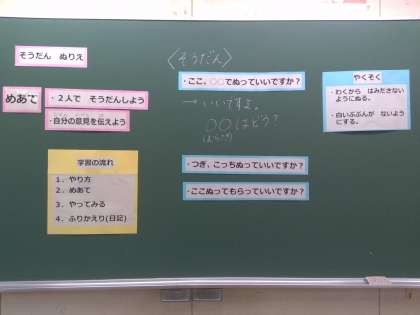 そうだん ぬりえ
めあて
・２人で そうだんしよう
・自分の意見を伝えよう
学習の流れ
１．やり方
２．めあて
３．やってみる
４．ふりかえり(日記)
〈そうだん〉
・ここ、○○でぬっていいですか？
→いいですよ。
○○はどう？
・つぎ、こっちぬっていいですか？
・ここぬってもらっていいですか？
やくそく
・わくから はみださない
ようにぬる。
・白いぶぶんが ないよう
にする。